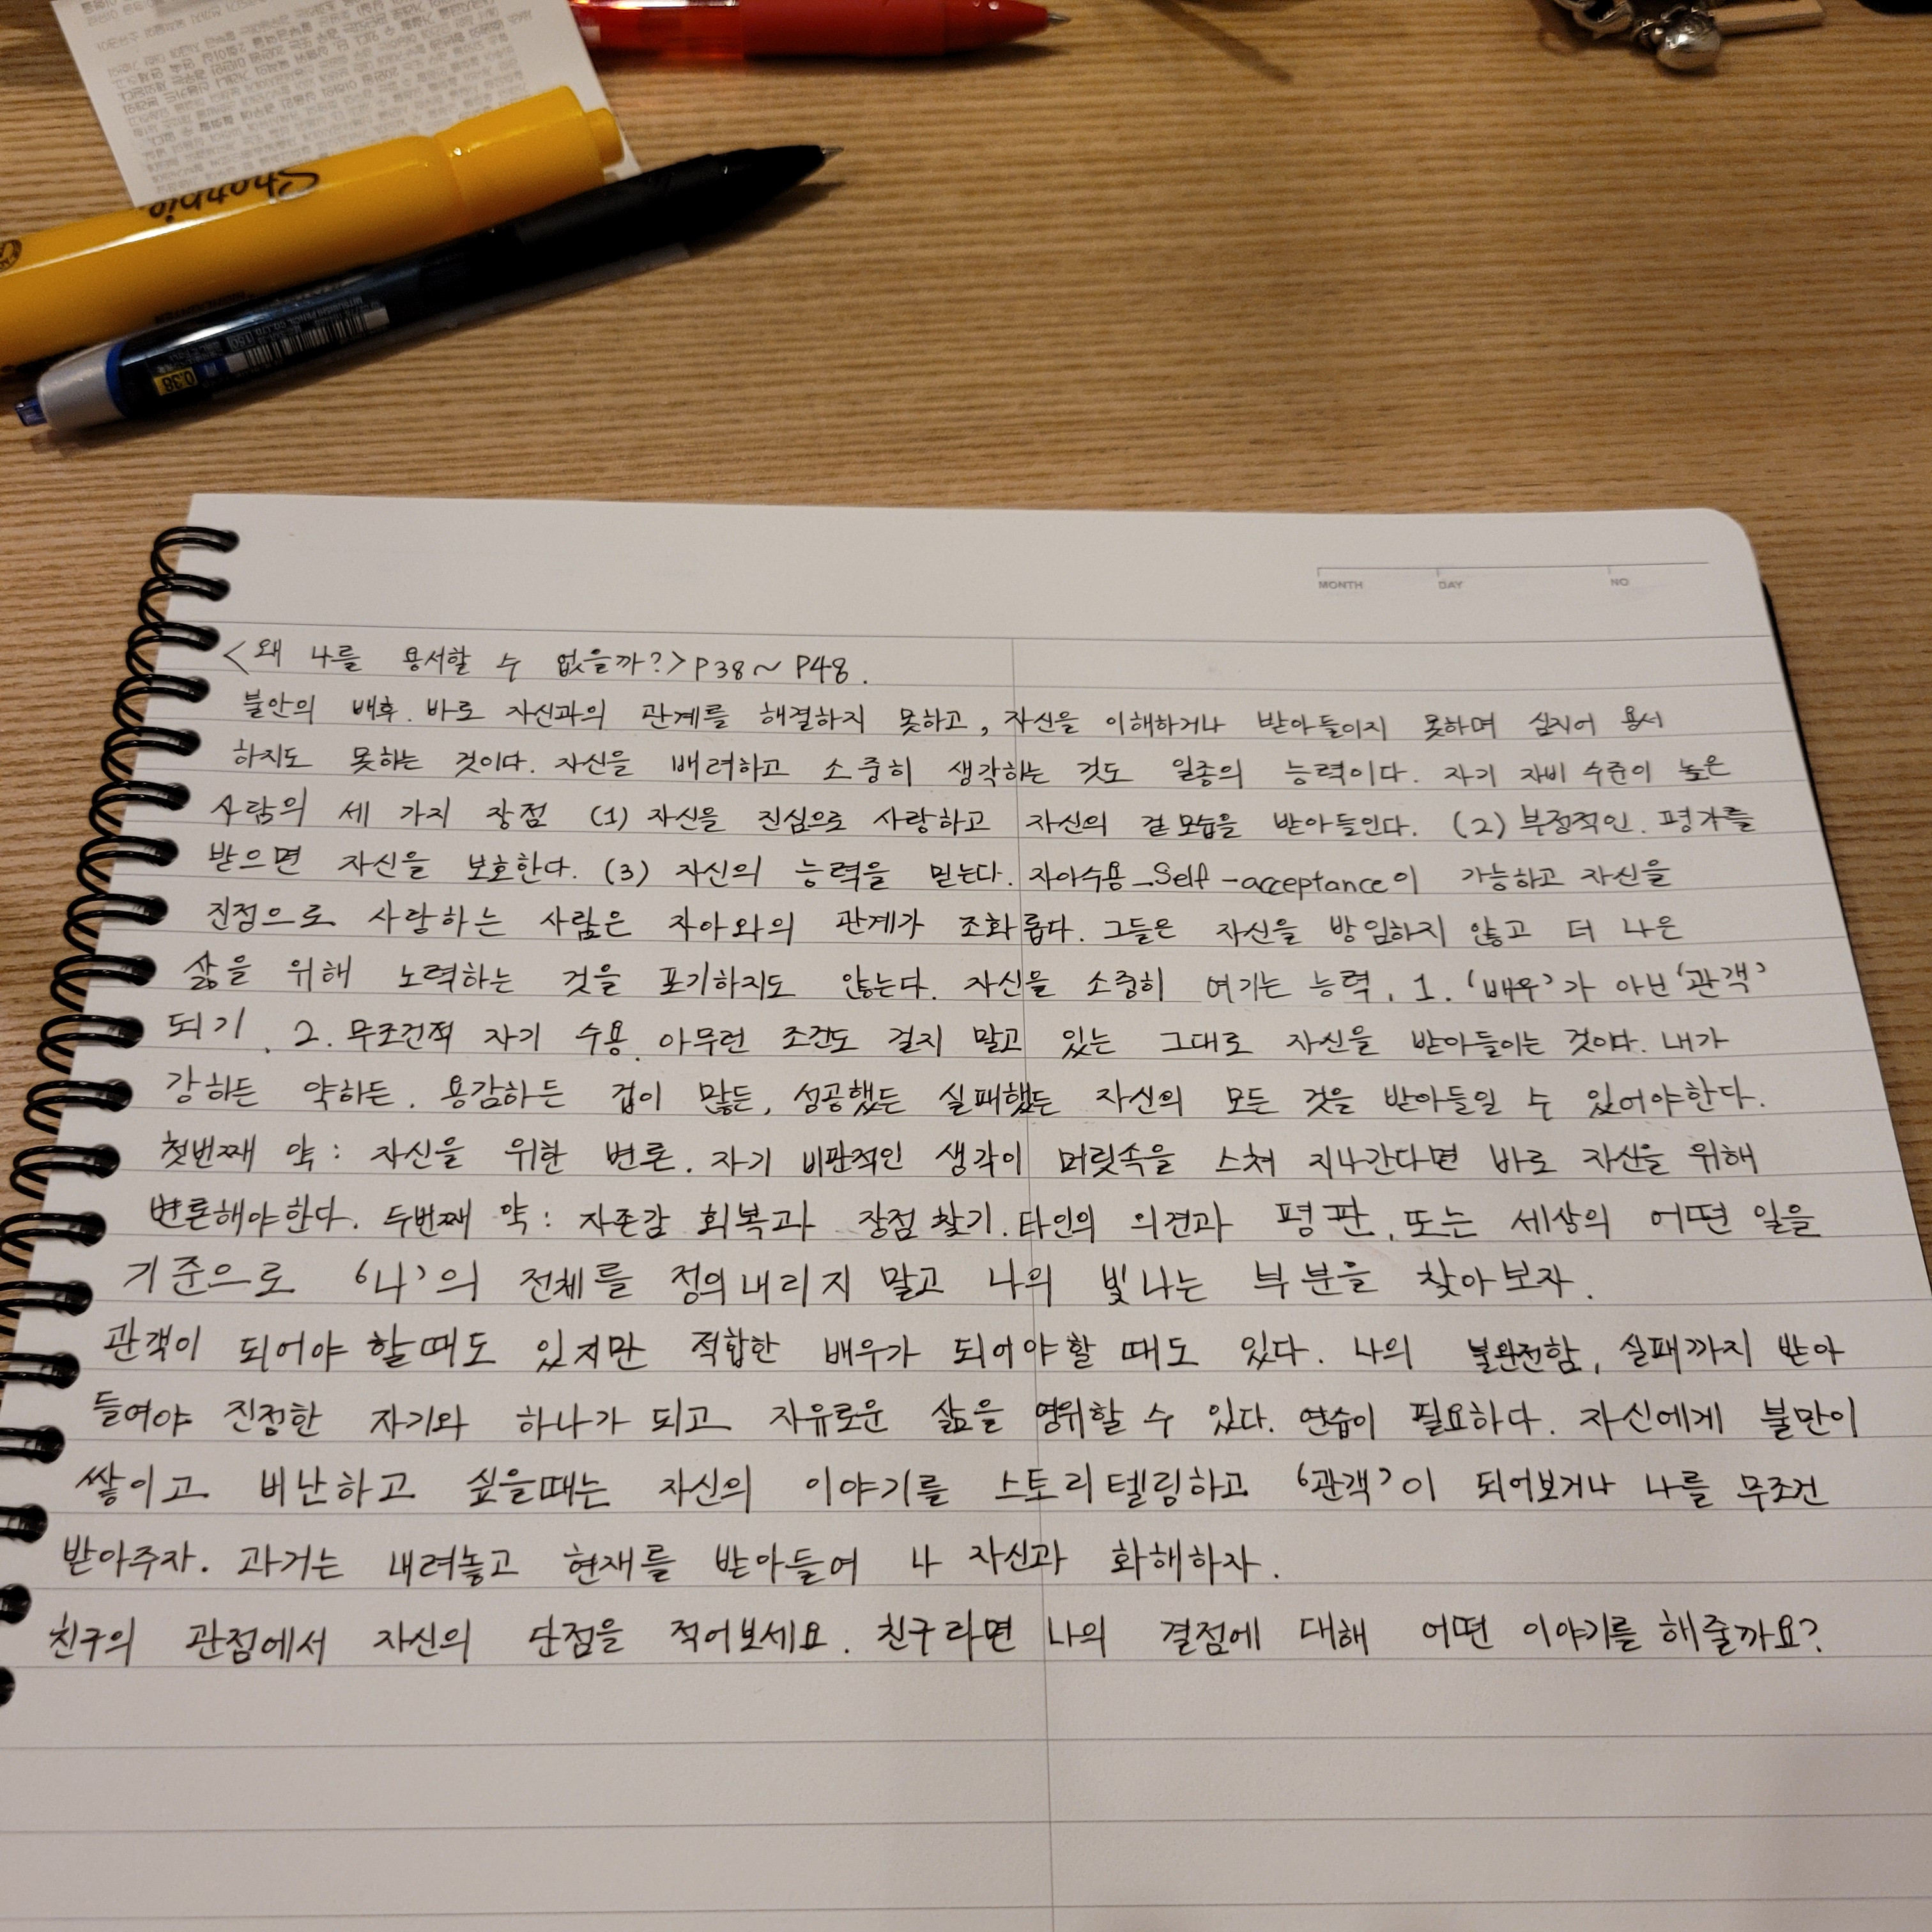 Sharpie
0.38
MONTH DAY NO
<왜 나를 용서할 수 없을까?> P38~ P48.
불안의 배후. 바로 자신과의 관계를 해결하지 못하고, 자신을 이해하거나 받아들이지 못하며 심지어 용서
하지도 못하는 것이다. 자신을 배려하고 소중히 생각하는 것도 일종의 능력이다. 자기 자비 수준이 높은
사람의 세 가지 장점 (1) 자신을 진심으로 사랑하고 자신의 겉모습을 받아들인다. (2) 부정적인. 평가를
받으면 자신을 보호한다. (3) 자신의 능력을 믿는다. 자아수용_Self-acceptance이 가능하고 자신을
진정으로 사랑하는 사람은 자아와의 관계가 조화롭다. 그들은 자신을 방임하지 않고 더 나은
삶을 위해 노력하는 것을 포기하지도 않는다. 자신을 소중히 여기는 능력. 1. '배우'가 아닌 '관객'
되기. 2. 무조건적 자기 수용. 아무런 조건도 걸지 말고 있는 그대로 자신을 받아들이는 것이다. 내가
강하든 약하든. 용감하든 겁이 많든, 성공했든 실패했든 자신의 모든 것을 받아들일 수 있어야한다.
첫번째 약: 자신을 위한 변론. 자기 비판적인 생각이 머릿속을 스쳐 지나간다면 바로 자신을 위해
변론해야한다. 두번째 약: 자존감 회복과 장점 찾기. 타인의 의견과 평판, 또는 세상의 어떤 일을
기준으로 '나'의 전체를 정의내리지 말고 나의 빛나는 부분을 찾아보자.
관객이 되어야 할때도 있지만 적합한 배우가 되어야할 때도 있다. 나의 불완전함, 실패까지 받아
들여야 진정한 자기와 하나가 되고 자유로운 삶을 영위할 수 있다. 연습이 필요하다. 자신에게 불만이
쌓이고 비난하고 싶을때는 자신의 이야기를 스토리텔링하고 '관객'이 되어보거나 나를 무조건
받아주자. 과거는 내려놓고 현재를 받아들여 나 자신과 화해하자.
친구의 관점에서 자신의 단점을 적어보세요. 친구라면 나의 결점에 대해 어떤 이야기를 해줄까요?